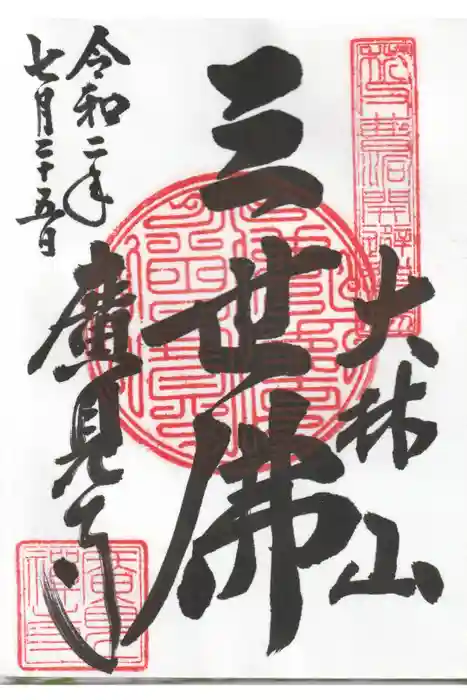 大林山
三世佛
廣見寺
令和二年
七月二十五日